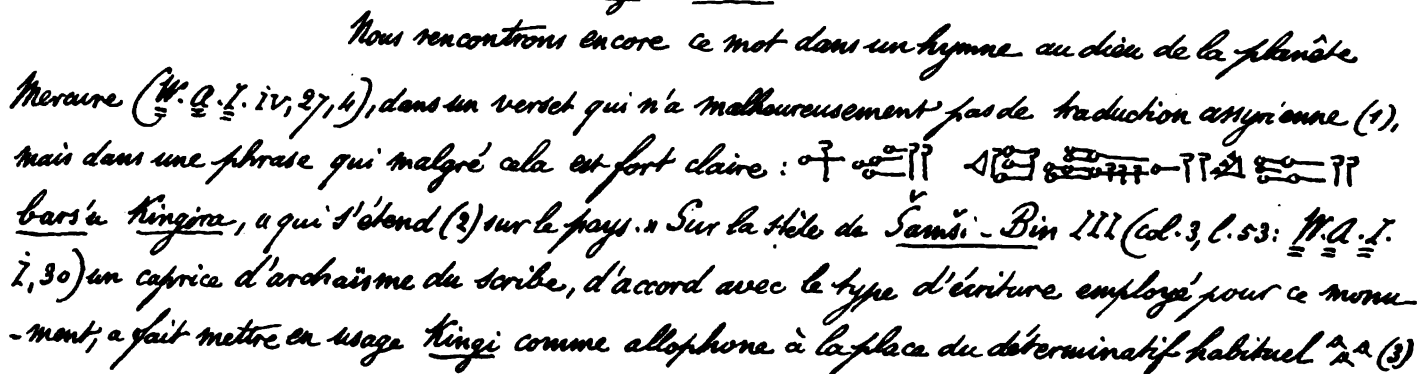 Nous rencontrons encore ce mot dans un hymne au dieu de la planète
Mercure (W. A. I. iv, 27, 4), dans un verset qui n'a malheureusement pas de traduction assyrienne (1),
mais dans une phrase qui malgré cela est fort claire :
bars'u Kingira, « qui s'étend (2) sur le pays. » Sur la stèle de Šamši-Bin III (col. 3, l. 53: W. A. I.
I, 30) un caprice d'archaïsme du scribe, d'accord avec le type d'écriture employé pour ce monu
-ment, a fait mettre en usage Kingi comme allophone à la place du déterminatif habituel (3)